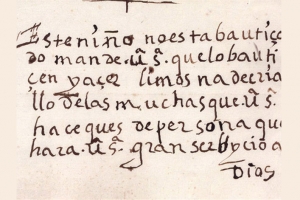 Este niño no esta bautiçe
do mande. u͠. s͠. que lo bauti
çen y açer limosna de cria
llo de las muchas que. u͠. s͠.
hace ques de persona que
hara. u͠. s͠. gran serbycio a
Dios